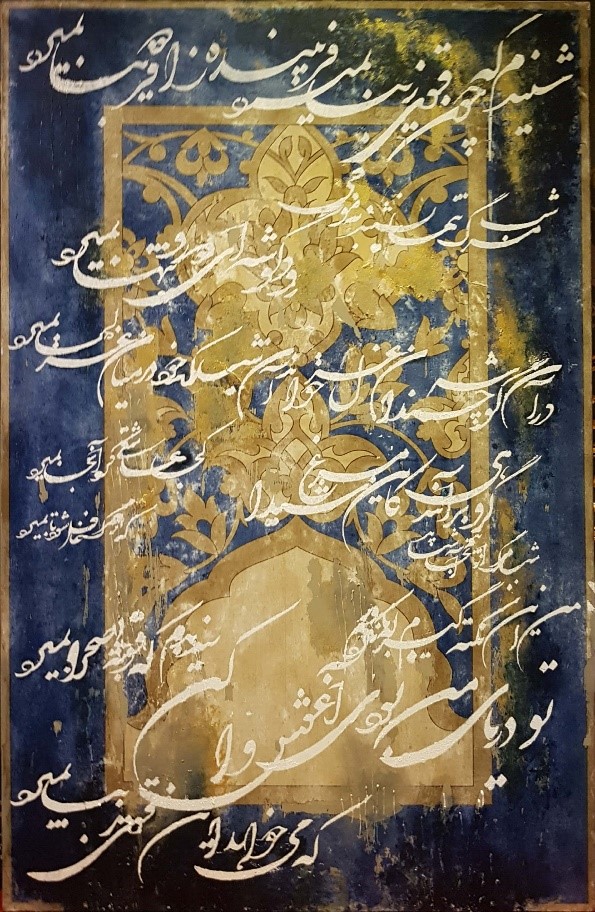 شنیدم که چون قوی زیبا بمیرد فریبنده زاد و فریبا بمیرد
شب مرگ تنها نشیند به موجی
رود گوشه‌ای دور و تنها بمیرد
در آن گوشه چندان غزل خواند آن شب که خود در میان غزلها بمیرد
گروهی بر آنند کاین مرغ شیدا کجا عاشقی کرد آنجا بمیرد
شب مرگ از بیم آنجا شتابد که از مرگ غافل شود تا بمیرد
من این نکته گیرم که باور نکردم ندیدم که قویی به صحرا بمیرد
تو دریای من بودی آغوش وا کن
که می‌خواهد این قوی زیبا بمیرد